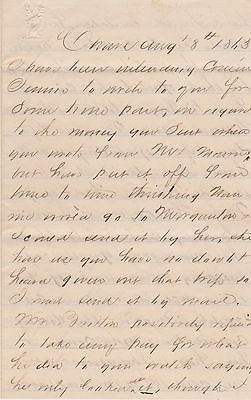 Aug 8th 1863
I have been intending Cousin
to write to you for
some time past, in regard
to the money you sent when
you wrote from Mr
but have put it off from
time to time thinking
me would go to Morganton
I could send it by him, he
has as you have no doubt
heard given out that trip so
I must send it by mail.
Mr positively refuses
to take any pay for what
he did to your watch saying
he only it, though I